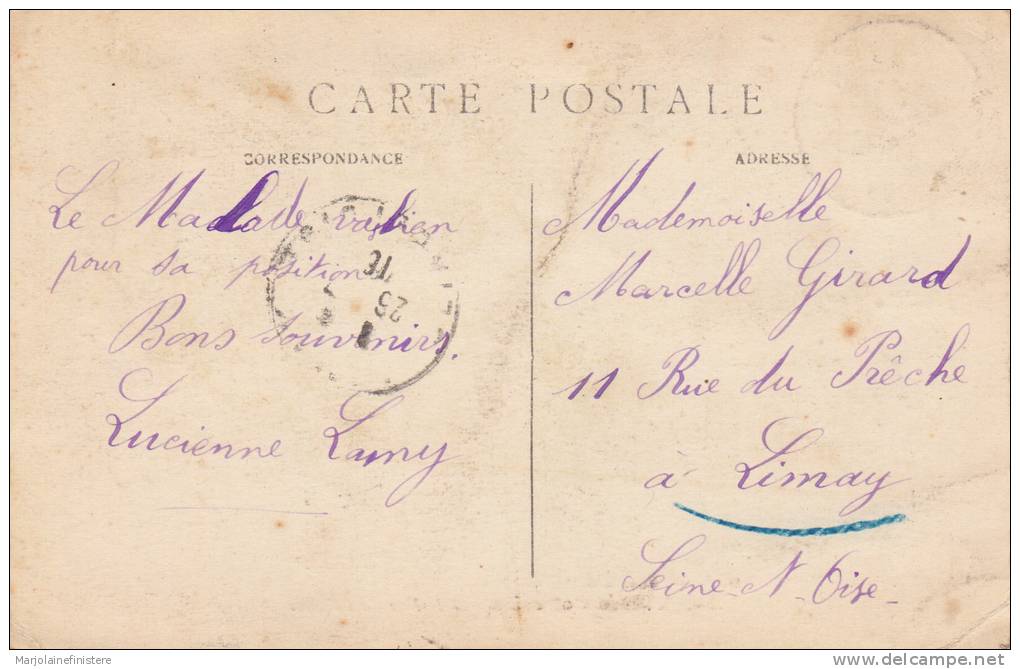 CARTE POSTALE
CORRESPONDANCE
Le Malade va bien
pour sa position
Bons souvenirs.
Lucienne Lamy
ADRESSE
Mademoiselle
Marcelle Girard
11 Rue du Prêche
à Limay
Seine-N-Oise-
25
Marjolainefinistere